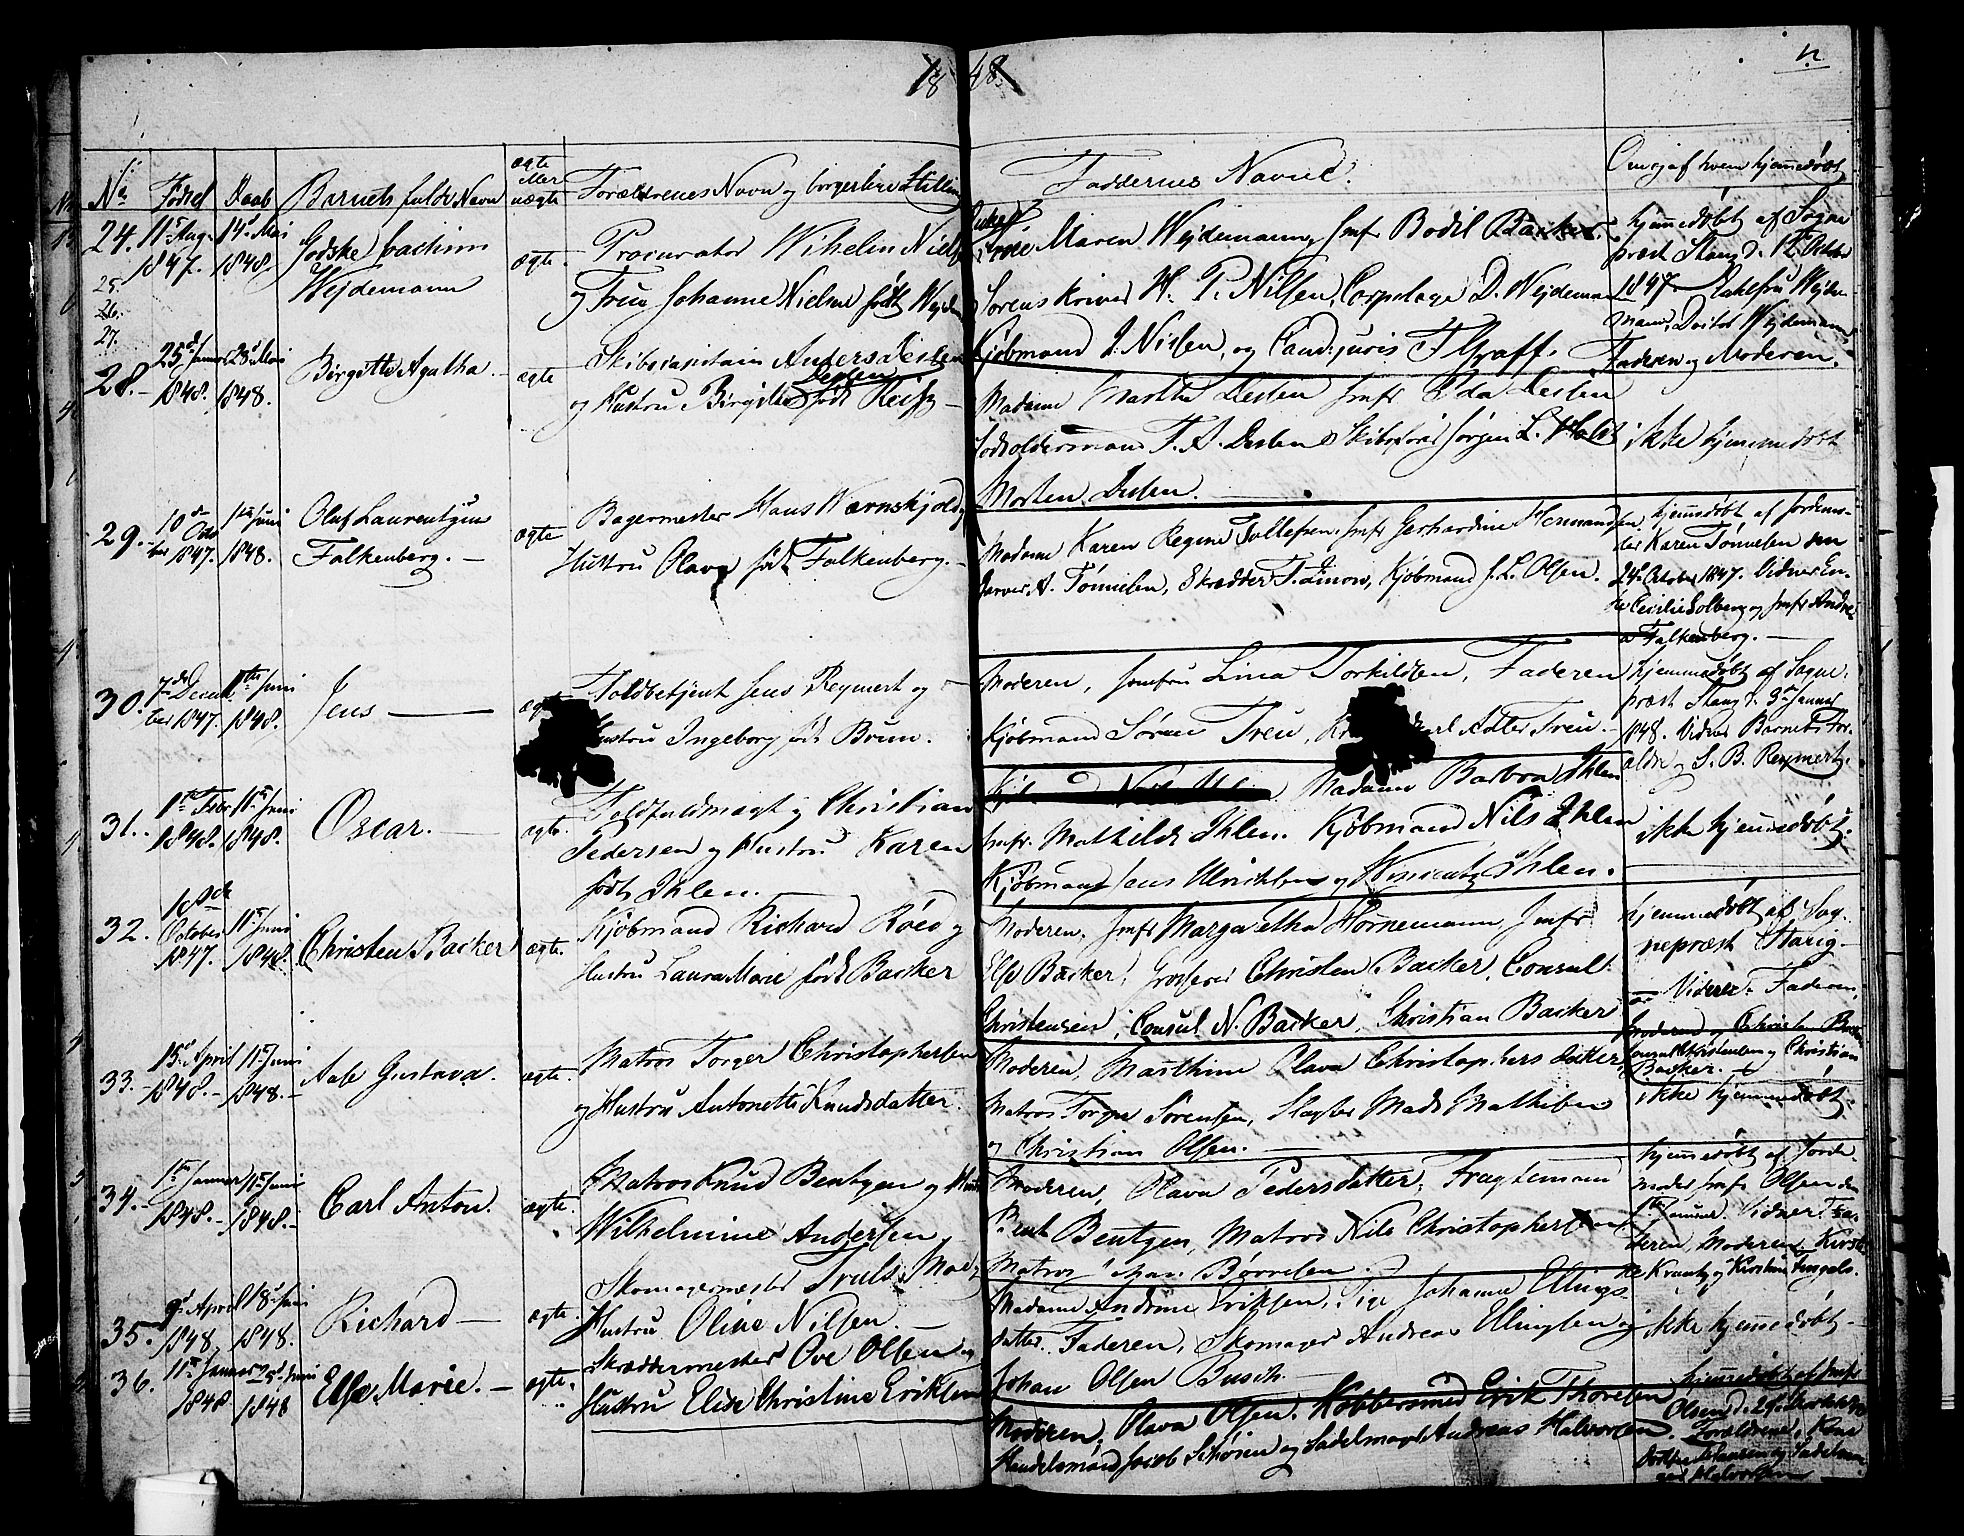 18 48.
No Født Daab Barnets fulde Navn ægte eller uægte Forældrenes Navn og borgerlige Stilling Faddernes Navne. Om og af hvem hjemmedøbt
24. 11te Aug. 1847. 14de Mai 1848. Godske Joachim Wejdemann ægte.
Procurator Wilhelm Nielsen
og Frue Johanne Nielsen født Wejde
Frue Maren Wejdemann, Jmfr Bodil Backer
Sorenskriver H. P. Nilsen, Corpslæge D. Wejdeman
Kjøbmand J. Nielsen, og Cand. juris F. Graff.
hjemmedøbt af Sogne
præst Stang d. 12 October
1847.
Fadderen og Moderen.
25.
26.
27.
28. 25de Januar 1848. 28de Mai 1848. Birgitte Agatha. ægte
Skibscapitain Anders Desten
og Hustru Birgitte født Reisz
Madame Marthe Desten Jmfr Ida Desten
F. A. Desten Skibsfører Jørgen L. Holst
Morten Desten.
ikke hjemmedøbt
29. 10de October 1847. Juni 1848. Oluf Laurentzius Falkenberg. ægte
Bagermester Hans Wærnskjold og
Hustru Olava født Falkenberg.
Madame Karen Regine Tollefsen, Jmfr Gerhardine Hermandsen,
Garver A. Tønnesen, Skrædder T. Linow, Kjøbmand J. L. Olsen.
hjemmedøbt af Jordemo-
der Karen Tønnesen den
24de October 1847. Vidner En-
ke Cecilie Solberg og Jmfr Andre
a Falkenberg.
30. 7de December 1847. 11te Juni 1848. Jens
Toldbetjent Jens Reymert og
Hustru Ingeborg født Bruun.
Moderen, Jomfru Lina Torkildsen, Faderen
Kjøbmand Søren Treu, Carl Adler Treu.
hjemmedøbt af Sogne-
præst Stang d. 3de Januar
1848. Vidner Barnets For-
ældre og S. B. Reymert.
31. 1te Febr 1848. 11te Juni 1848. Oscar. ægte.
Toldfuldmægtig Christian
Pedersen og Hustru Karen
født Ihlen.
Madame Barbra Ihlen
Jmfr. Mathilde Ihlen. Kjøbmand Nils Ihlen
Kjøbmand Jens Ulrichsen og Ihlen.
ikke hjemmedøbt.
32. October 1847. 11te Juni 1848. Christen Backer ægte.
Kjøbmand Richard Röed og
Hustru Laura Marie født Backer
Moderen, Jmfr Margaretha Hornemann, Jmfr
Else Backer, Grosserer Christen Backer, Consul
Christensen, Consul N. Backer, Christian Backer
hjemmedøbt af Sog-
nepræst Stang
Vidner: Faderen,
Moderen og Christen Backer
Consul Christensen og Christian
Backer.
33. 15de April 1848. 11te Juni 1848. Aase Gustava. ægte.
Matros Torger Christophersen
og Hustru Antonette Knudsdatter.
Moderen, Marthine Olava Christophersdatter,
Matros Torger Sørensen, Slagter Mads Mathisen
og Christian Olsen.
ikke hjemmedøbt.
34. 1te Januar 1848. 11te Juni 1848. Carl Anton. ægte.
Matros Knud Bentzen og Hustru
Wilhelmine Andersen
Moderen, Olava Pedersdatter, Fragtemand
Bernt Bentzen, Matros Nils Christophersen,
Matros Børresen.
hjemmedøbt af Jorde-
moder Jmfr Olsen den
1te Januar. Vidner: Fa-
deren, Moderen, Kirsti-
ne Krantz og Kirstine Engels.
35. 9de April 1848. 18de Juni 1848. Richard ægte.
Skomagermester Truls Moe og
Hustru Oline Nilsen.
Madame Andrine Eriksen, Pige Johanne Ellings
datter. Faderen, Skomager Andreas Ellingsen og
Johan Olsen Busch.
ikke hjemmedøbt
36. 11te Januar 1848 25de Juni 1848 Else Marie. ægte.
Skræddermester Ove Olsen og
Hustru Elise Christine Eriksen
Moderen, Olava Olsen. Kobbersmed Erik Thoresen
Handelsmand Jacob Schøien og Sadelmager Andreas Halvorsen.
hjemmedøbt af Jmfr
Olsen
Forældrene,
Halvorsen